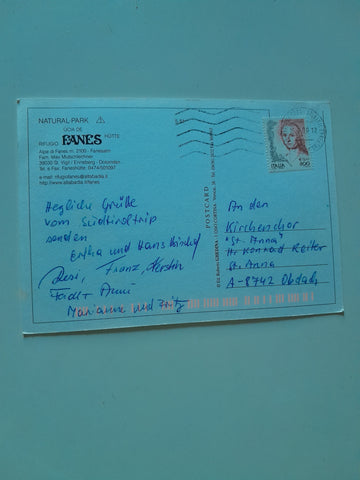 NATURAL-PARK
ÜCIA DE
RIFUGIO FANES HÜTTE
Alpe di Fanes m. 2100 - Fanesalm
Fam. Max Mutschlechner
39030 St. Vigil / Enneberg - Dolomiten
Tel. e Fax: Faneshütte: 0474/501097
e-mail: rifugiofanes@altabadia.it
http://www.altabadia.it/fanes
Hezliche Grüße
vom Südtiroltrip
senden
Erika und Hans
Resi, Franz, Kerstin
Anni
Marianne und Fritz
POSTCARD
ITALIA
800
An den
Kirchenchor
"St. Anna"
Hr. Konrad Reiter
St. Anna
A-8742 Obdach